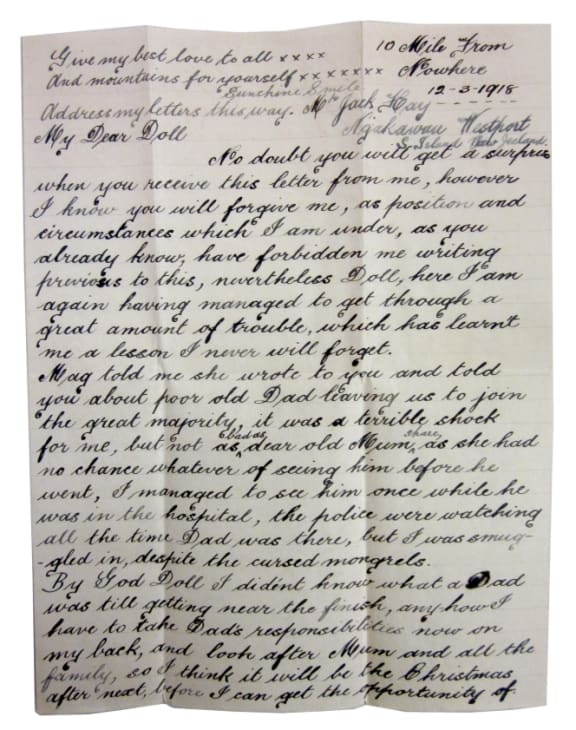 Give my best love to all x x x x
10 Mile From
And mountains for yourself x x x x x x x
Nowhere
Sunshine Smile
12-3-1918
Address my letters this way. Mr Jack Hay
Ngakawau Westport
S. Island New Zealand.
My Dear Doll
No doubt you will get a surprise
when you receive this letter from me, however
I know you will forgive me, as position and
circumstances which I am under, as you
already know, have forbidden me writing
previous to this, nevertheless Doll, here I am
again having managed to get through a
great amount of trouble, which has learnt
me a lesson I never will forget.
Mag told me she wrote to you and told
you about poor old Dad leaving us to join
the great majority, it was a terrible shock
for me, but not as bad as dear old Mum share, as she had
no chance whatever of seeing him before he
went, I managed to see him once while he
was in the hospital, the police were watching
all the time Dad was there, but I was smug-
-gled in, despite the cursed mongrels.
By God Doll I didn't know what a Dad
was till getting near the finish, anyhow I
have to take Dad's responsibilities now on
my back, and look after Mum and all the
family, so I think it will be the Christmas
after next, before I can get the opportunity of